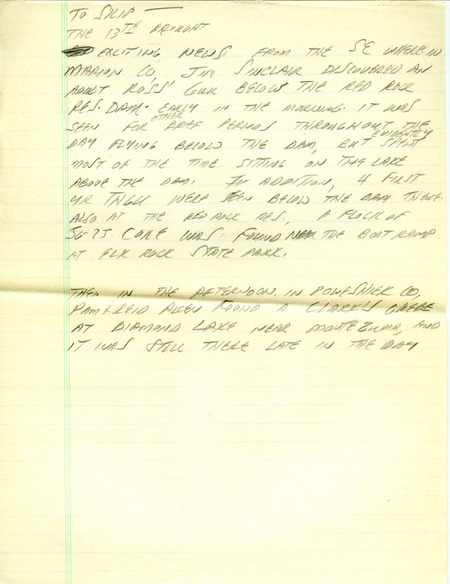 TO SKIP —
THE 13TH BROUGHT
EXCITING NEWS FROM THE SE WHERE IN
MARION CO, JIM SINCLAIR DISCOVERED AN
ADULT ROSS' GULL BELOW THE RED ROCK
RES. DAM EARLY IN THE MORNING. IT WAS
SEEN FOR OTHER BRIEF PERIODS THROUGHOUT THE
DAY FLYING BELOW THE DAM, BUT EVIDENTLY SPENT
MOST OF THE TIME SITTING ON THE LAKE
ABOVE THE DAM. IN ADDITION, 4 FIRST
YR THGU WERE SEEN BELOW THE DAM THERE.
ALSO AT THE RED ROCK RES., A FLOCK OF
50-75 CORE WAS FOUND NEAR THE BOAT RAMP
AT ELK ROCK STATE PARK.
THEN IN THE AFTERNOON IN POWESHIEK CO,
PAM & REID ALLEN FOUND A CLARK'S GREBE
AT DIAMOND LAKE NEAR MONTEZUMA, AND
IT WAS STILL THERE LATE IN THE DAY